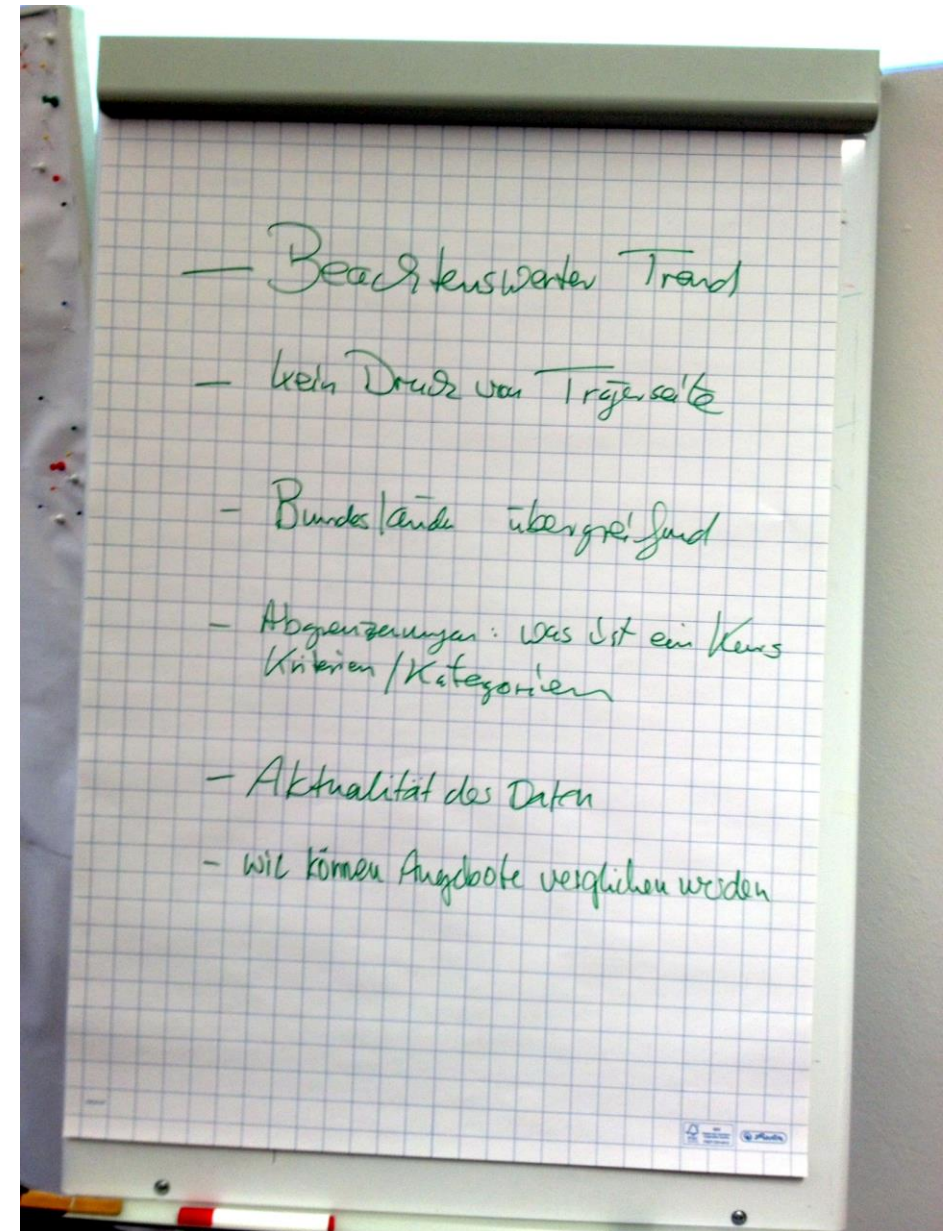 — Beachtenswerter Trend
— kein Druck von Trägerseite
- Bundesländer übergreifend
- Abgrenzungen: was ist ein Kurs
Kriterien/Kategorien
- Aktualität der Daten
- wie können Angebote verglichen werden